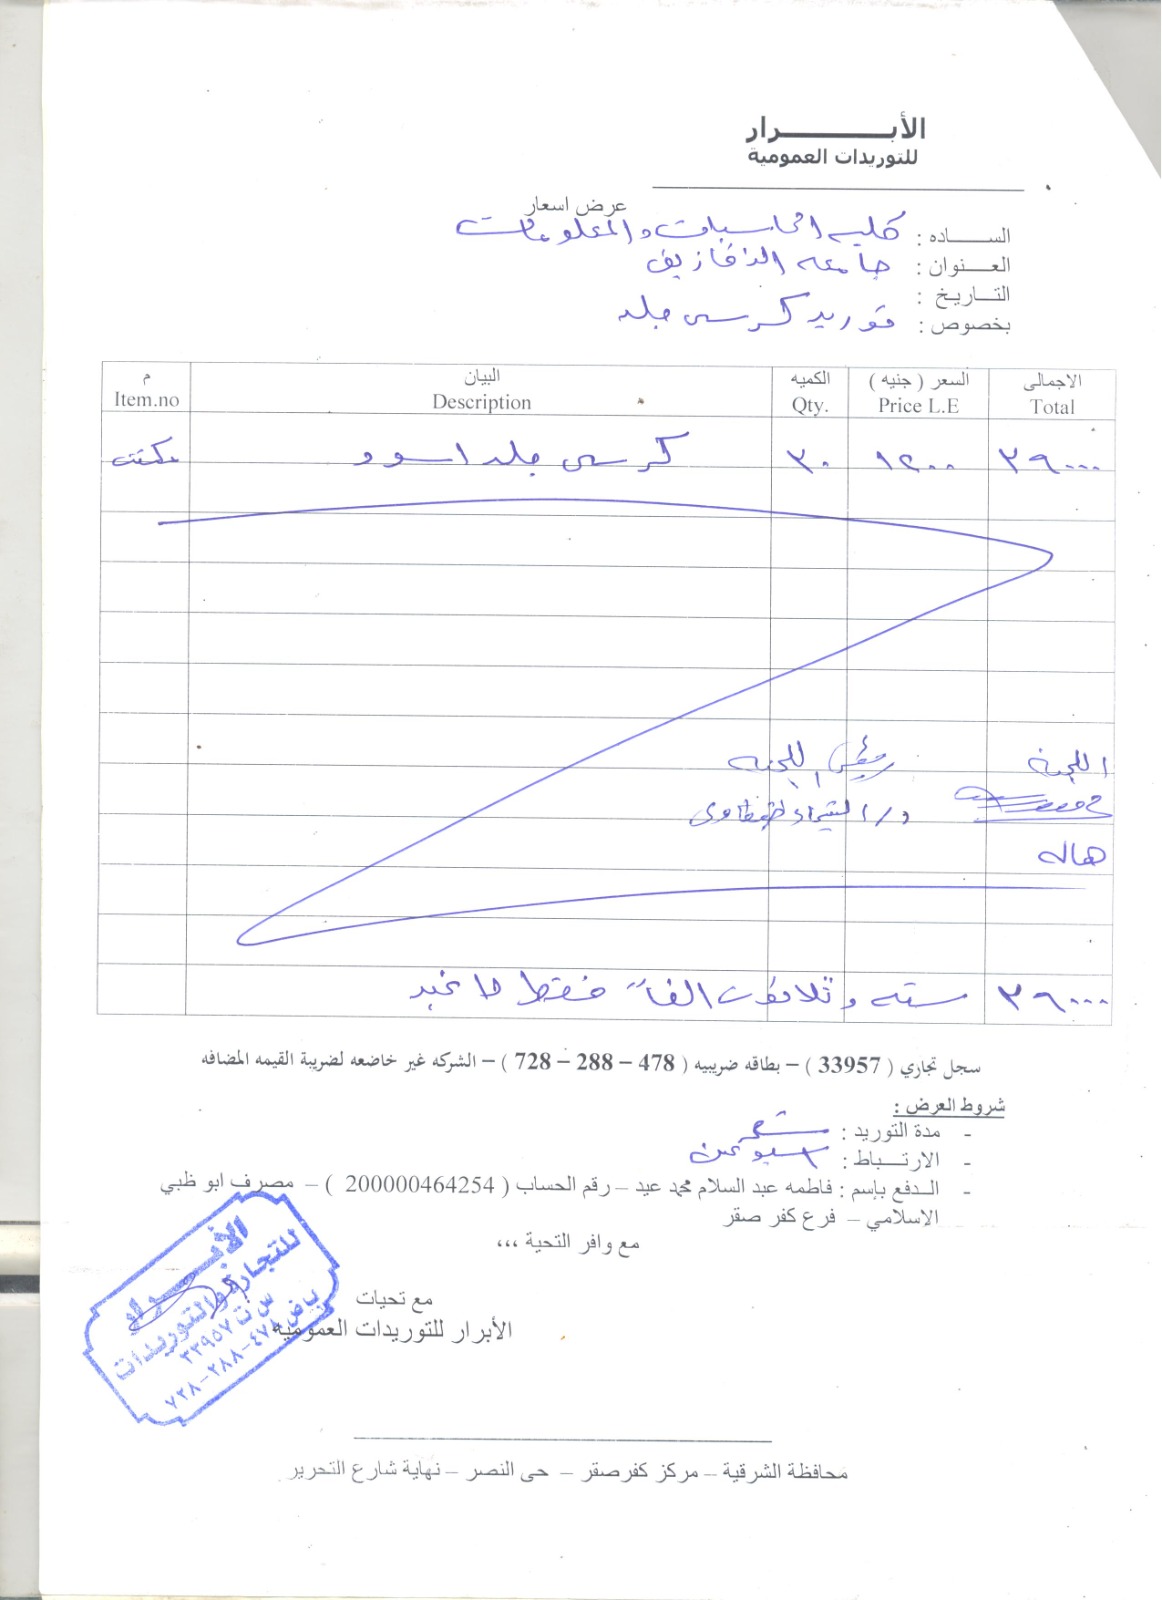 الأبــــــــرار
للتوريدات العمومية
عرض اسعار
الســـاده : كليه الحاسبات والمعلومات
العـنوان : جامعه الزقازيق
التـاريخ :
بخصوص : توريد كرسى جلد
م البيان الكميه السعر ( جنيه ) الاجمالى
Item.no Description Qty. Price L.E Total
مكتب كرسى جلد اسود ٣٠ ١٢٠٠ ٣٦٠٠٠
اللجنة رئيس اللجنه
د/ الشيماء
هاله
٣٦٠٠٠ سته وثلاثون الفا فقط لا غير
سجل تجاري ( 33957 ) – بطاقه ضريبيه ( 478 – 288 – 728 ) – الشركه غير خاضعه لضريبة القيمه المضافه
شروط العرض :
- مدة التوريد : شهر
- الارتــباط : اسبوعين
- الـدفع بإسم : فاطمه عبد السلام محمد عيد – رقم الحساب ( 200000464254 ) – مصرف ابو ظبي
الاسلامي – فرع كفر صقر
مع وافر التحية ،،،
مع تحيات
الأبرار للتوريدات العموميه
الأبــرار
للتجارة والتوريدات
س ت ٣٣٩٥٧
ب ض ٤٧٨-٢٨٨-٧٢٨
محافظة الشرقية – مركز كفرصقر – حى النصر – نهاية شارع التحرير